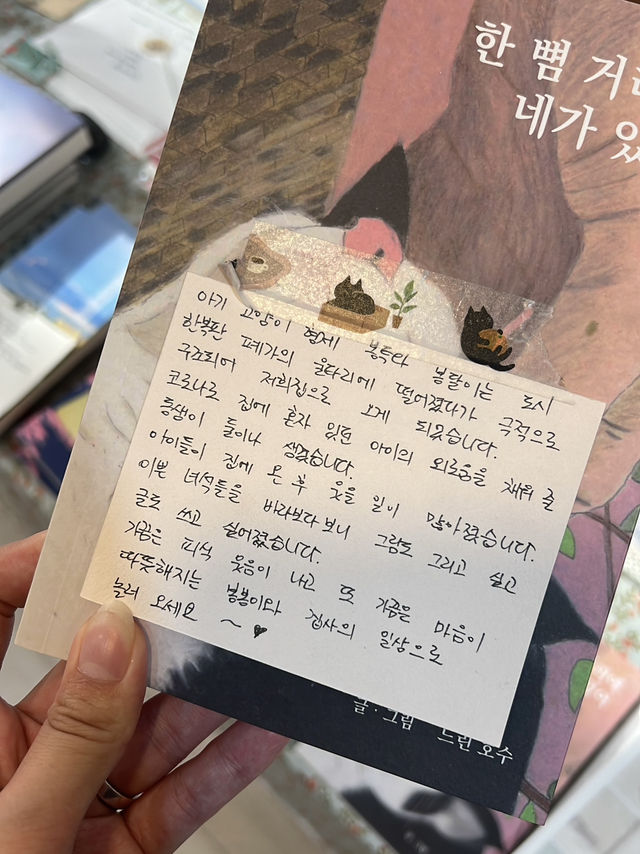 한 뼘 거리
네가 있
아기 고양이 형제 봉탁과 봉팔이는 도시
한복판 폐가의 울타리에 떨어졌다가 극적으로
구조되어 저희집으로 오게 되었습니다.
코로나로 집에 혼자 있던 아이의 외로움을 채워 줄
동생이 둘이나 생겼습니다.
아이들이 집에 온 후 웃을 일이 많아졌습니다.
이쁜 녀석들을 바라보다 보니 그림도 그리고 싶고
글도 쓰고 싶어졌습니다.
가끔은 피식 웃음이 나고 또 가끔은 마음이
따뜻해지는 봉봉이와 집사의 일상으로
놀러 오세요 ~ ♥
글·그림 느린오수